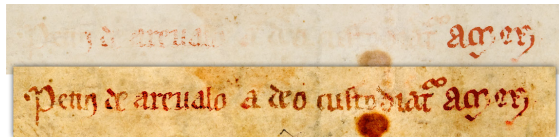 Petri de arevalo a deo custodiat amen
Petri de arevalo a deo custodiat amen